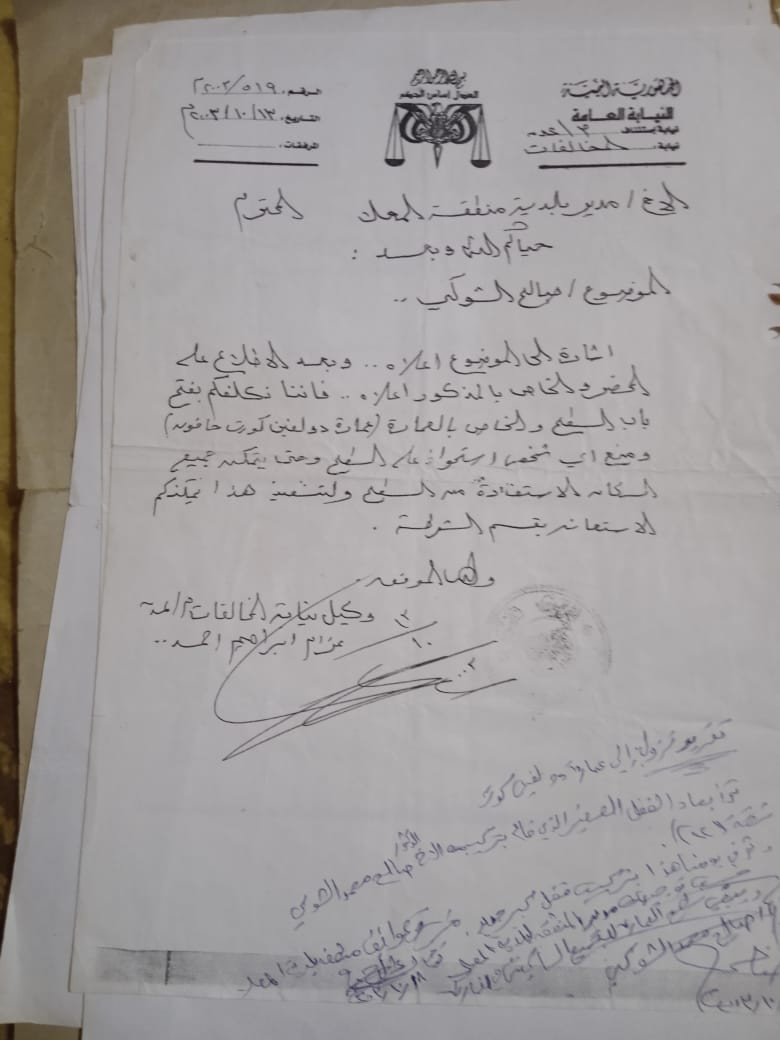 الجمهورية اليمنية
النيابة العامة
نيابة استئناف م/عدن
نيابة: المخالفات
بسم الله الرحمن الرحيم
العدل أساس الحكم
الرقم: ٢٠٠٢/٥١٩
التاريخ: ٢٠٠٣/١٠/١٣م
المرفقات:
الأخ/ مدير بلدية منطقة المعلا المحترم
حياكم الله وبعد:
الموضوع/ صالح الشوكي..
اشارة الى الموضوع اعلاه.. وبعد الاطلاع على
المحضر والخاص بالمذكور اعلاه.. فاننا نكلفكم بفتح
باب السطح والخاص بالعمارة (عمارة دولفين كورت حافون)
ومنع اي شخص استحواذ على السطح وحتى يتمكن جميع
السكان الاستفادة من السطح ولتنفيذ هذا يمكنكم
الاستعانه بقسم الشرطة.
والله الموفق
وكيل نيابة المخالفات م/عدن
عزام ابراهيم احمد..
١٣
١٠
٠٠٣
تقرير نزول إلى عمارة دولفين كورت
تم ابعاد القفل الصغير الذي قام بتركيبه الاخ الدكتور صالح محمد الشوكي
شقة (٢٠٢)
وتم في يومنا هذا بتركيب قفل كبير جديد.
صالح محمد الشوكي